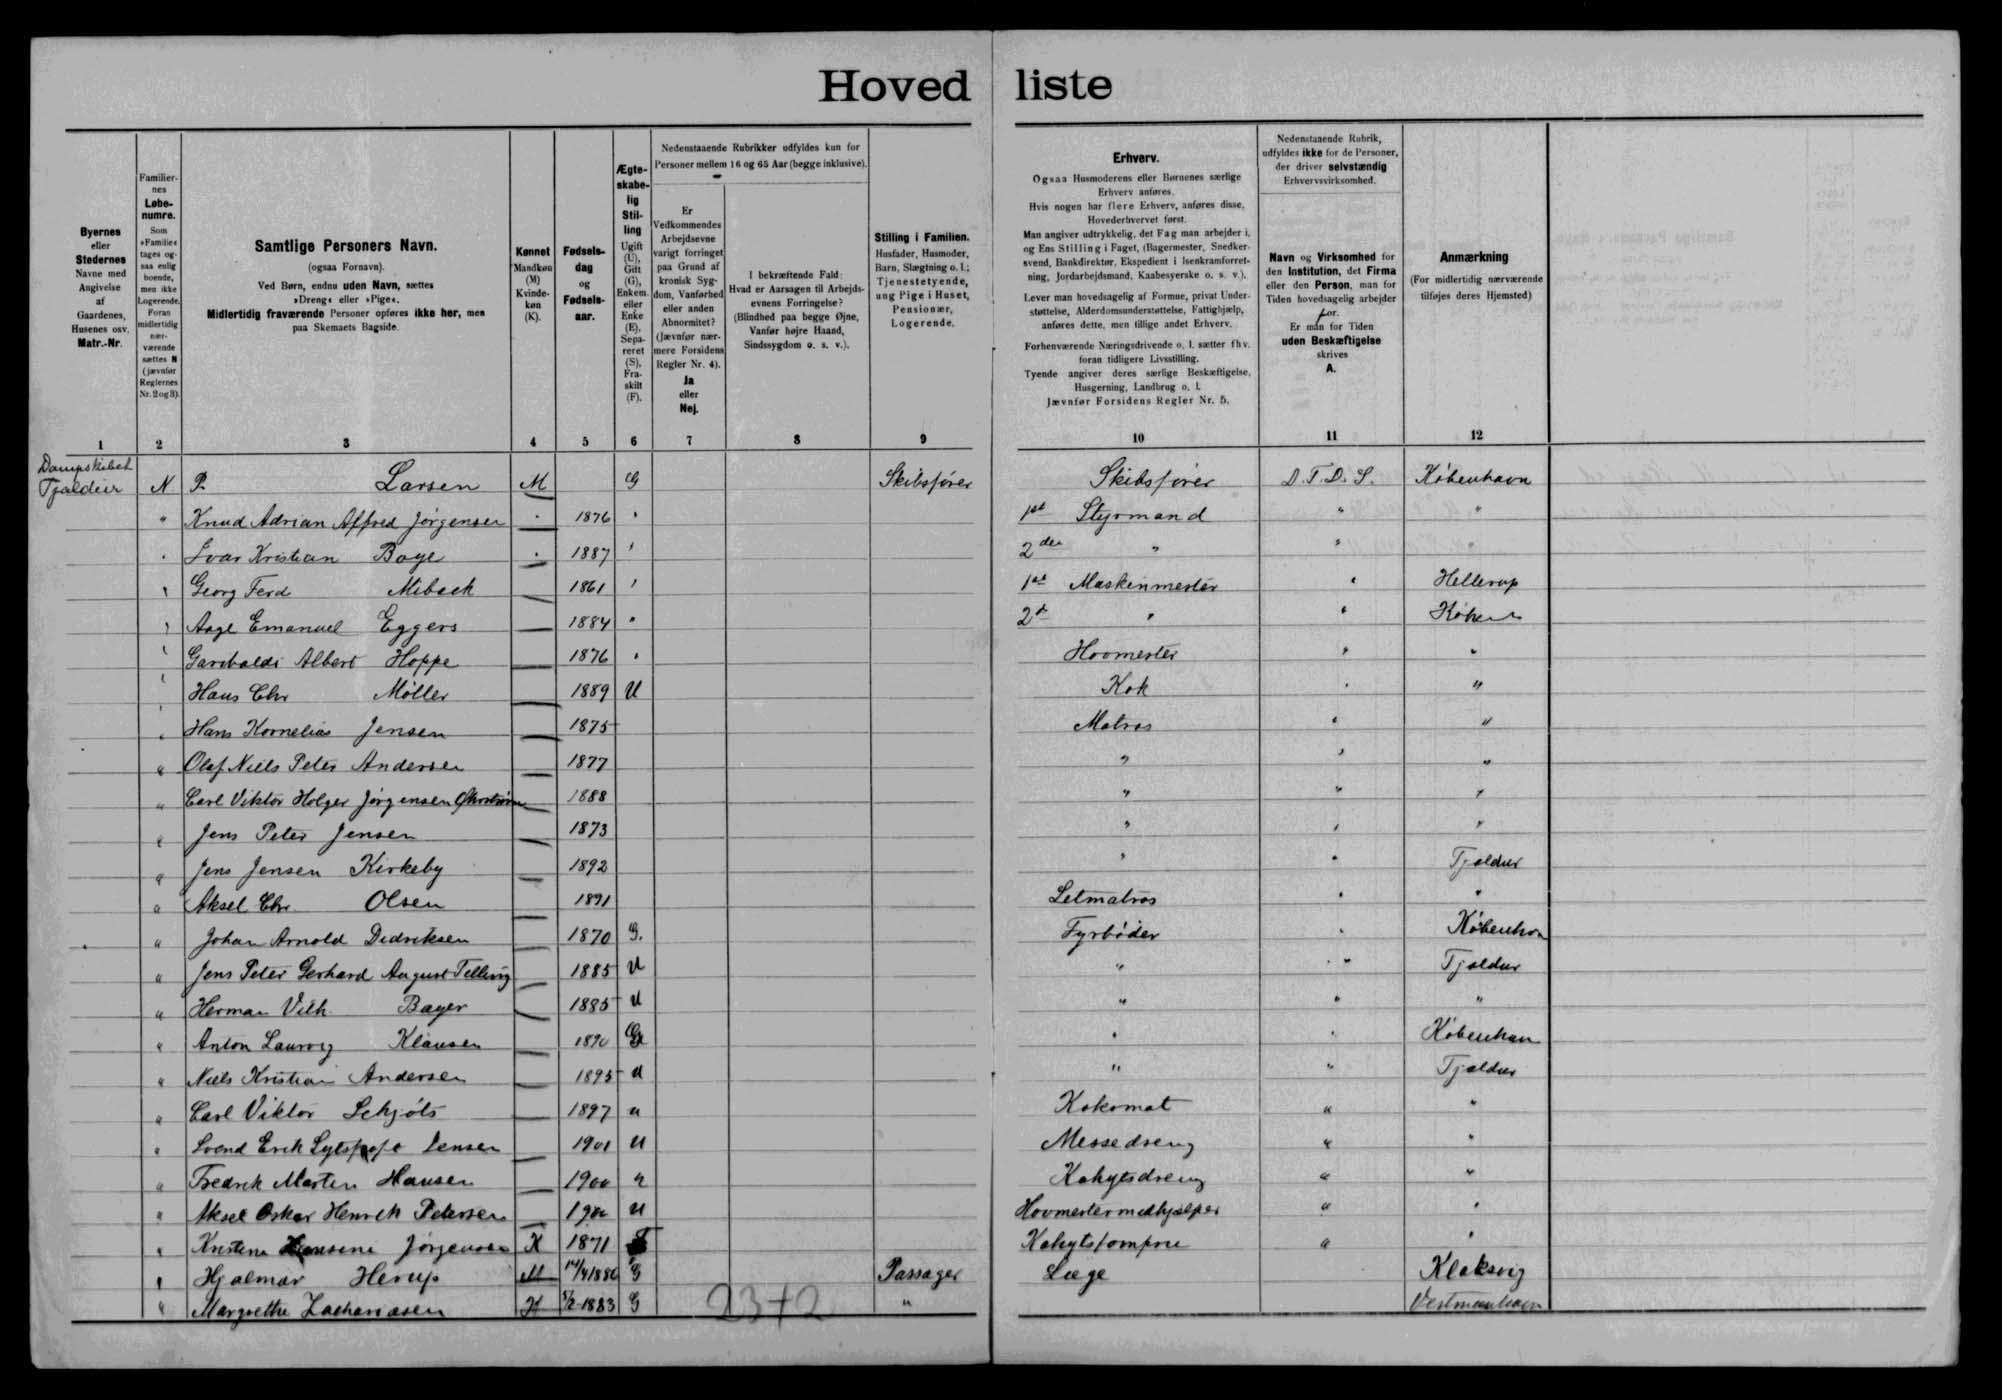 Hovedliste
Byernes eller Stedernes Navne med Angivelse af Gaardenes, Husenes osv. Matr.-Nr.
Familiernes Løbenumre. Som »Familie« tages ogsaa enlig boende, men ikke Logerende. Foran midlertidig nærværende sættes N (jævnfør Reglernes Nr. 2 og 3).
Samtlige Personers Navn. (ogsaa Fornavn). Ved Børn, endnu uden Navn, sættes »Dreng« eller »Pige«. Midlertidig fraværende Personer opføres ikke her, men paa Skemaets Bagside.
Kønnet Mandkøn (M) Kvindekøn (K).
Fødselsdag og Fødselsaar.
Ægteskabelig Stilling Ugift (U), Gift (G), Enkem. eller Enke (E), Separeret (S), Fraskilt (F).
Nedenstaaende Rubrikker udfyldes kun for Personer mellem 16 og 65 Aar (begge inklusive).
Er Vedkommendes Arbejdsevne varigt forringet paa Grund af kronisk Sygdom, Vanførhed eller anden Abnormitet? (Jævnfør nærmere Forsidens Regler Nr. 4). Ja eller Nej.
I bekræftende Fald: Hvad er Aarsagen til Arbejdsevnens Forringelse? (Blindhed paa begge Øjne, Vanfør højre Haand, Sindssygdom o. s. v.).
Stilling i Familien. Husfader, Husmoder, Barn, Slægtning o. l.; Tjenestetyende, ung Pige i Huset, Pensionær, Logerende.
Erhverv. Ogsaa Husmoderens eller Børnenes særlige Erhverv anføres. Hvis nogen har flere Erhverv, anføres disse, Hovederhvervet først. Man angiver udtrykkelig, det Fag man arbejder i, og Ens Stilling i Faget, (Bagermester, Snedkersvend, Bankdirektør, Ekspedient i Isenkramforretning, Jordarbejdsmand, Kaabesyerske o. s. v.). Lever man hovedsagelig af Formue, privat Understøttelse, Alderdomsunderstøttelse, Fattighjælp, anføres dette, men tillige andet Erhverv. Forhenværende Næringsdrivende o. l. sætter fhv. foran tidligere Livsstilling. Tyende angiver deres særlige Beskæftigelse, Husgerning, Landbrug o. l. Jævnfør Forsidens Regler Nr. 5.
Nedenstaaende Rubrik, udfyldes ikke for de Personer, der driver selvstændig Erhvervsvirksomhed.
Navn og Virksomhed for den Institution, det Firma eller den Person, man for Tiden hovedsagelig arbejder for. Er man for Tiden uden Beskæftigelse skrives A.
Anmærkning (For midlertidig nærværende tilføjes deres Hjemsted)
1 2 3 4 5 6 7 8 9 10 11 12
Dampskibet
Tjaldur N P. Larsen M G Skibsfører Skibsfører D.F.D.S. København
" Knud Adrian Alfred Jørgensen " 1876 " 1ste Styrmand " "
" Ivar Kristian Boye " 1887 " 2den " " "
" Georg Ferd Miback — 1861 " 1ste Maskinmester " Hellerup
" Aage Emanuel Eggers — 1884 " 2d " " Københ
" Garibaldi Albert Hoppe — 1876 " Hovmester " "
" Hans Chr Møller — 1889 U Kok " "
" Hans Kornelius Jensen — 1875 Matros " "
" Olaf Niels Peter Andersen — 1877 " " "
" Carl Viktor Holger Jørgensen — 1888 " " "
" Jens Peter Jensen — 1873 " " "
" Jens Jensen Kirkeby — 1892 " " Tjaldur
" Aksel Chr. Olsen — 1891 Letmatros " "
" Johan Arnold Didriksen — 1870 G. Fyrbøder " Københvn
" Jens Peter Gerhard August Telling — 1885 U " " Tjaldur
" Herman Vilh. Bayer — 1885 U " " "
" Anton Laurvig Klausen — 1890 G " " København
" Niels Kristian Andersen — 1895 U " " Tjaldur
" Carl Viktor Schjöts — 1897 u Koksmat " "
" Svend Erik Jensen — 1901 U Messedreng " "
" Fredrik Marten Hansen — 1900 u Kahytsdreng " "
" Aksel Oskar Henrik Petersen — 1900 U Hovmestermedhjælper " "
" Kristine Hansine Jørgensen K 1871 Kahytsjomfru " "
" Hjalmar Herup M 14/4 1886 G Passager Læge Klaksvig
" Margrethe Zachariasen K 5/2-1883 G " Vestmanhavn
23+2